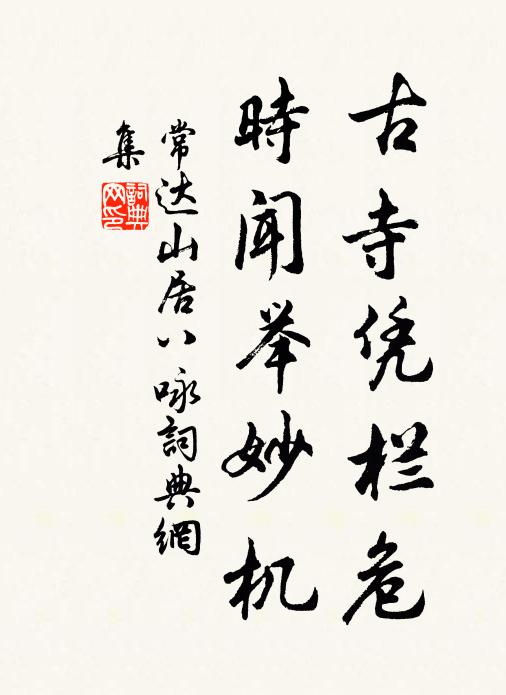 古寺凭栏危
時闻举妙机
常达山居八咏詞典網
集
詞典
网印